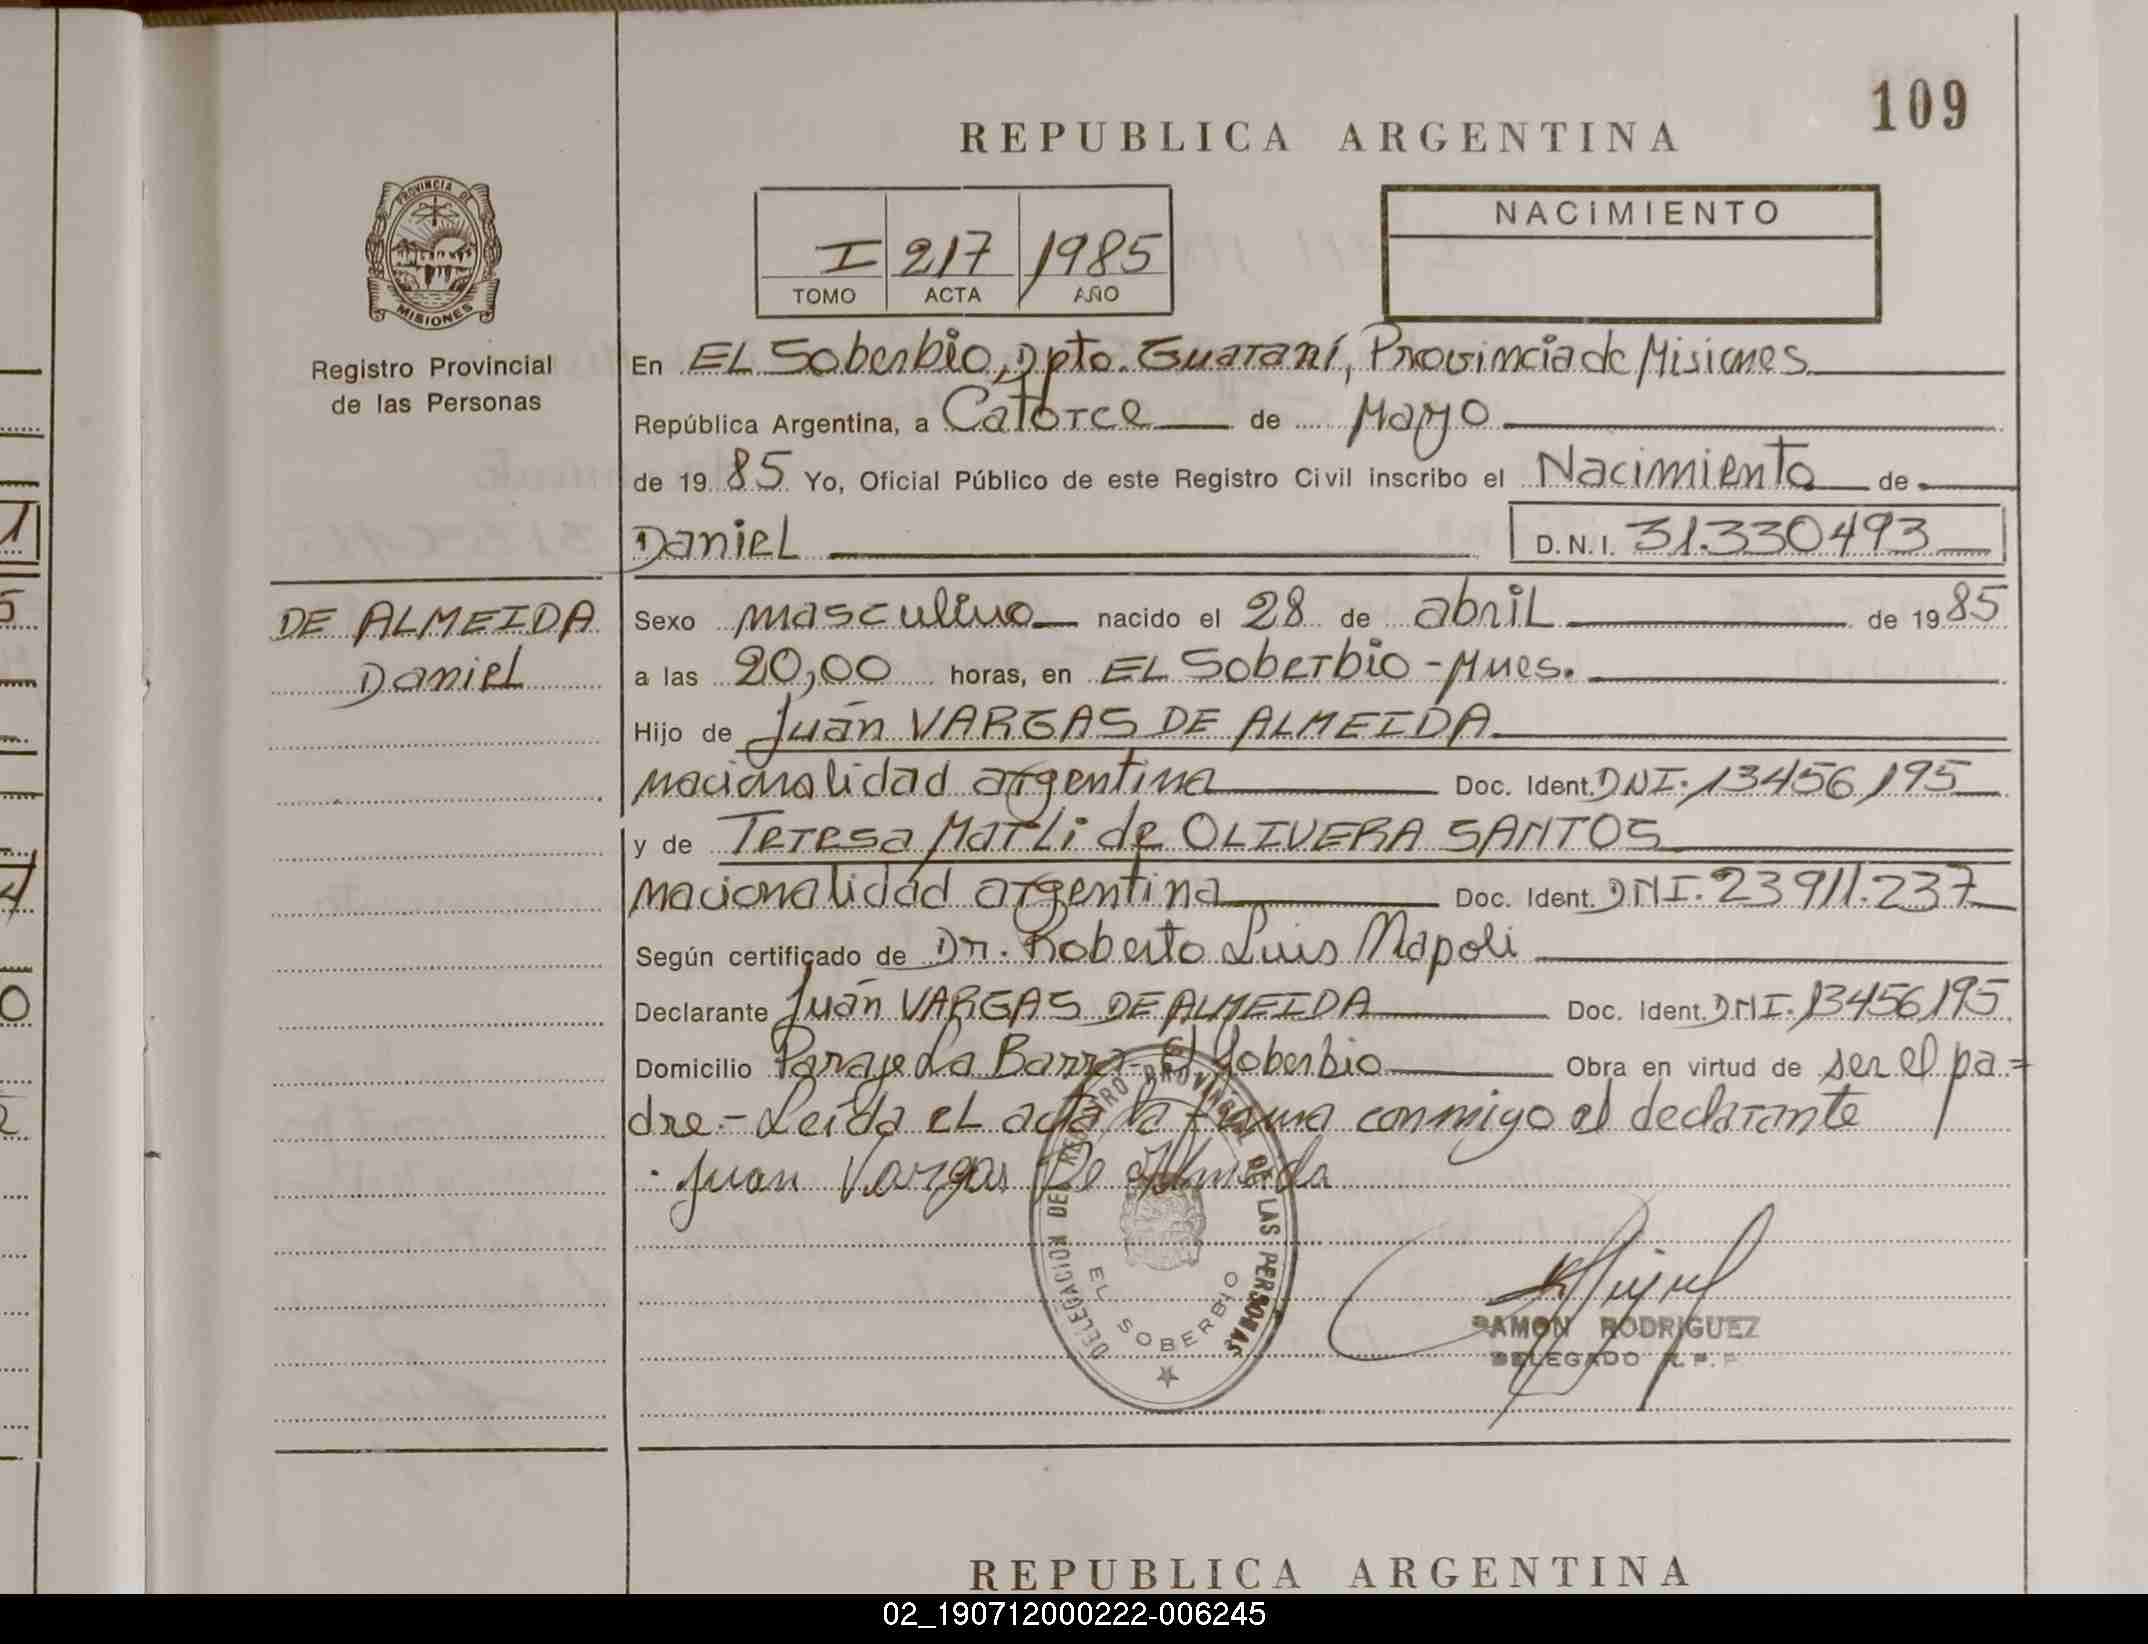 109
REPUBLICA ARGENTINA
PROVINCIA DE
MISIONES
Registro Provincial
de las Personas
I 217 1985
TOMO ACTA AÑO
NACIMIENTO
En EL Soberbio, Dpto. Guaraní, Provincia de Misiones
República Argentina, a Catorce de Mayo
de 1985 Yo, Oficial Público de este Registro Civil inscribo el Nacimiento de
Daniel D.N.I. 31.330493
DE ALMEIDA
Daniel
Sexo masculino nacido el 28 de abril de 1985
a las 20,00 horas, en EL Soberbio - Mnes.
Hijo de Juán VARGAS DE ALMEIDA
nacionalidad argentina Doc. Ident. DNI. 13456195
y de Teresa Marli de OLIVERA SANTOS
nacionalidad argentina Doc. Ident. DNI. 23911.237
Según certificado de Dr. Roberto Luis Napoli
Declarante Juán VARGAS DE ALMEIDA Doc. Ident. DNI. 13456195
Domicilio Paraje La Barra - El Soberbio Obra en virtud de ser el pa=
dre.- Leída el acta la firma conmigo el declarante
Juan Vargas De Almeida
DELEGACION DEL REGISTRO PROVINCIAL DE LAS PERSONAS
EL SOBERBIO
RAMON RODRIGUEZ
DELEGADO R.P.P
REPUBLICA ARGENTINA
02_190712000222-006245